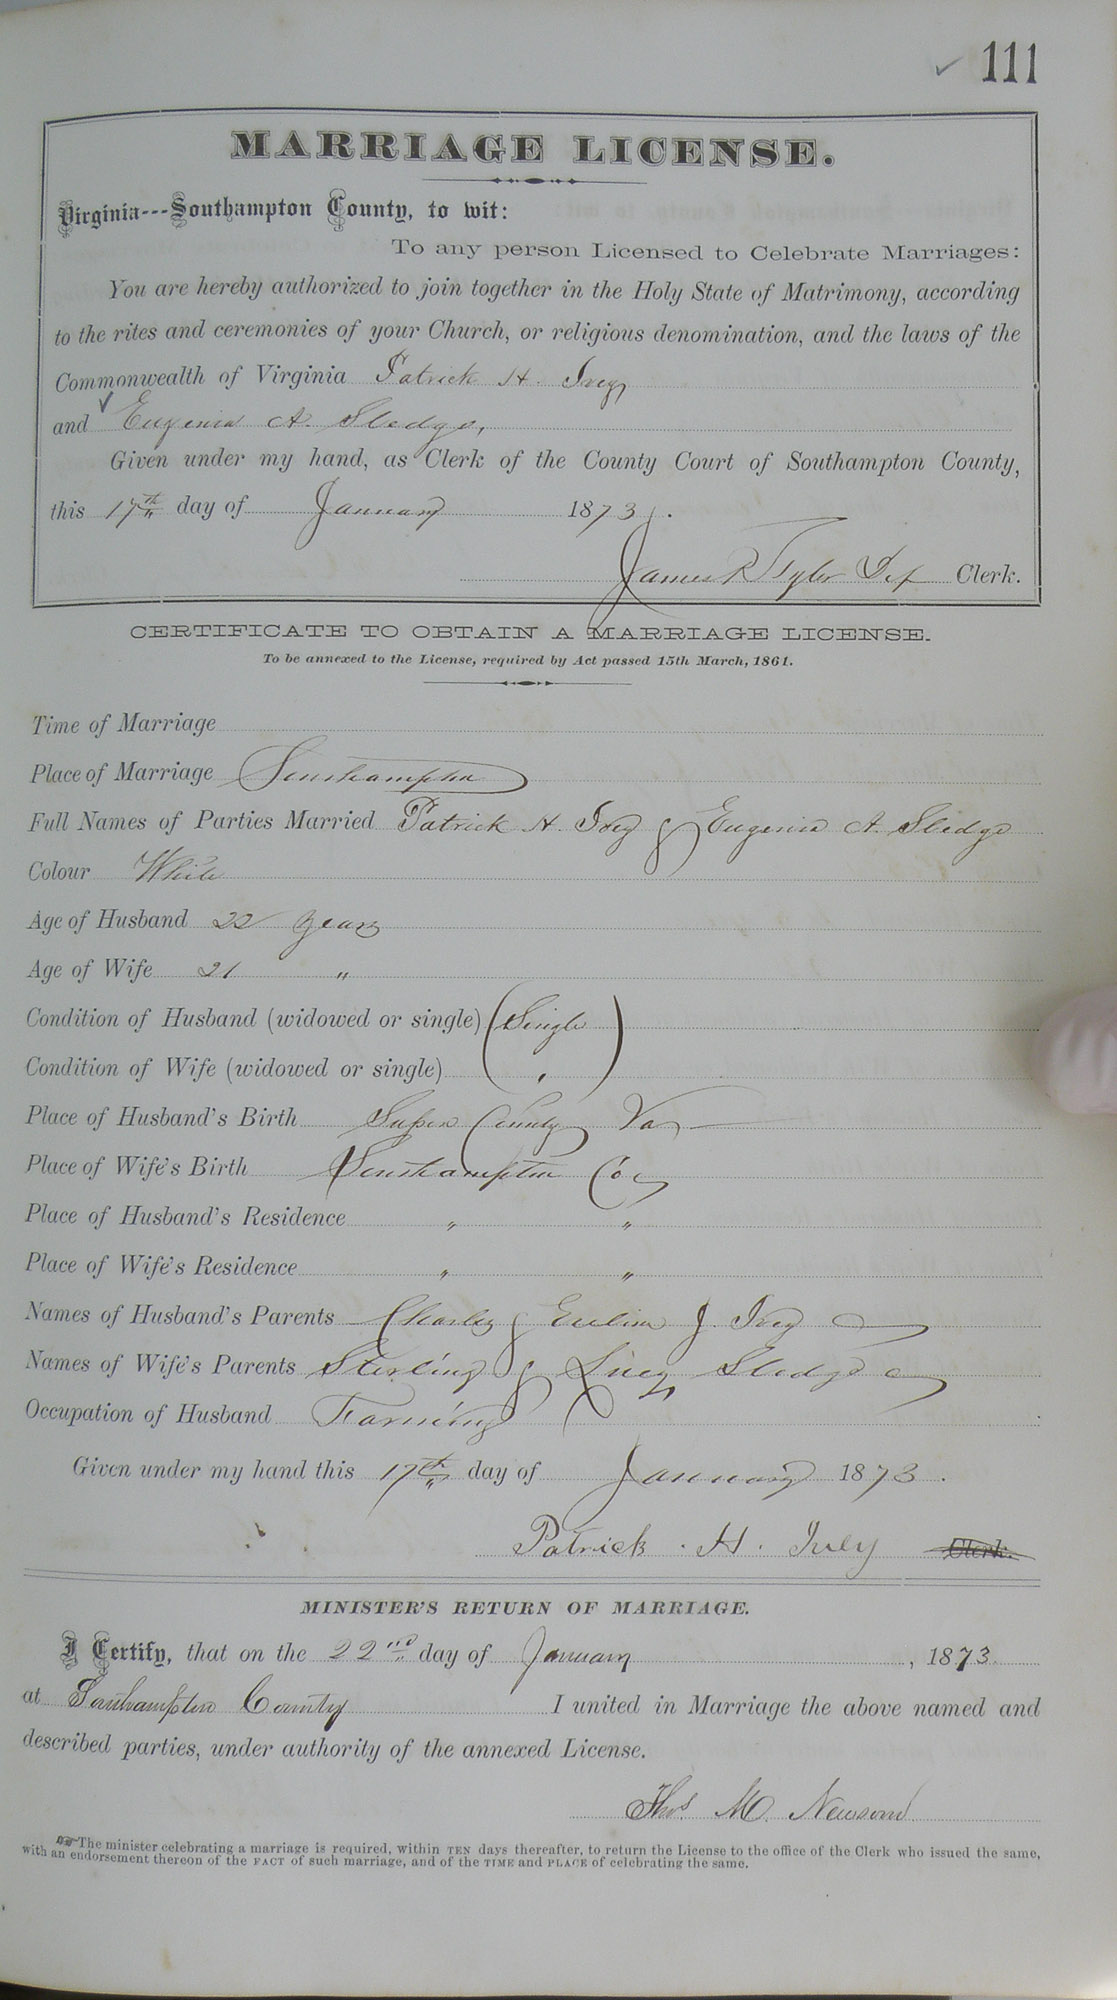 111
MARRIAGE LICENSE.
Virginia---Southampton County, to wit:
To any person Licensed to Celebrate Marriages:
You are hereby authorized to join together in the Holy State of Matrimony, according
to the rites and ceremonies of your Church, or religious denomination, and the laws of the
Commonwealth of Virginia Patrick H. Ivey
and Eugenia A. Sledge,
Given under my hand, as Clerk of the County Court of Southampton County,
this 17th day of January 1873.
James R Tyler Clerk.
CERTIFICATE TO OBTAIN A MARRIAGE LICENSE.
To be annexed to the License, required by Act passed 15th March, 1861.
Time of Marriage
Place of Marriage Southampton
Full Names of Parties Married Patrick H. Ivey & Eugenia A. Sledge
Colour White
Age of Husband 22 years
Age of Wife 21 "
Condition of Husband (widowed or single) Single
Condition of Wife (widowed or single) "
Place of Husband's Birth Sussex County Va
Place of Wife's Birth Southampton Co
Place of Husband's Residence " "
Place of Wife's Residence " "
Names of Husband's Parents Charles & J. Ivey
Names of Wife's Parents Sterling & Lucy Sledge
Occupation of Husband Farming
Given under my hand this 17th day of January 1873.
Patrick . H . Ivey Clerk.
MINISTER'S RETURN OF MARRIAGE.
I Certify, that on the 22nd day of January, 1873.
at Southampton County I united in Marriage the above named and
described parties, under authority of the annexed License.
Thos M. Newsom
The minister celebrating a marriage is required, within TEN days thereafter, to return the License to the office of the Clerk who issued the same,
with an endorsement thereon of the FACT of such marriage, and of the TIME and PLACE of celebrating the same.